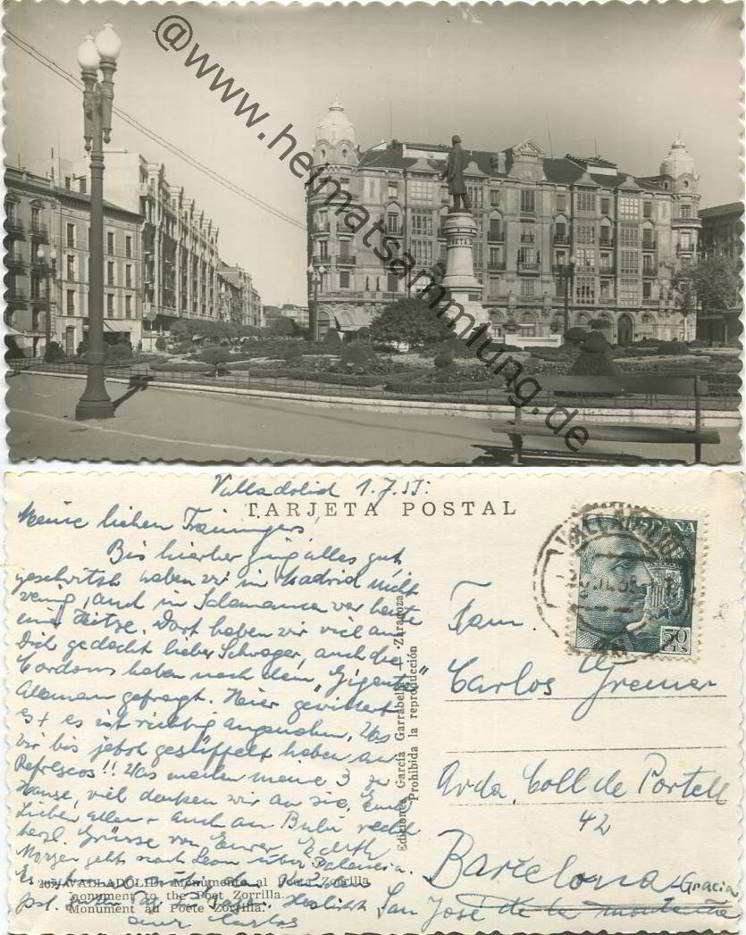 @www.heimatsammlung.de
POETA
Valladolid 1.7.55.
TARJETA POSTAL
Meine lieben
Bis hierher ging alles gut
geschwitzt haben wir in Madrid nicht
wenig, auch in Salamanca war heute
eine Hitze. Dort haben wir viel an
Dich gedacht lieber Schwager, auch die
haben nach dem "
Aleman gefragt. Hier gewittert
es + es ist richtig angenehm. Was
wir bis jetzt gesüffelt haben an
Refrescos!! Was machen meine 3 zu
Hause, viel denken wir an sie, Euch
Lieben allen + auch an Bubi recht
herzl. Grüsse von Eurer Edith
Morgen geht nach Leon über Palencia.
VALLADOLID: Monumento al Poeta Zorrilla.
monument to the Poet Zorrilla.
Monument au Poète Zorrilla.
Herzlichst
Euer Carlos
Ediciones García Garrabella - Zaragoza
Prohibida la reproducción
VALLADOLID
ESPAÑA
50 CTS
Fam.
Carlos Greiner
Avda. Coll de Portell
42
Barcelona
Gracia
San José de la montaña